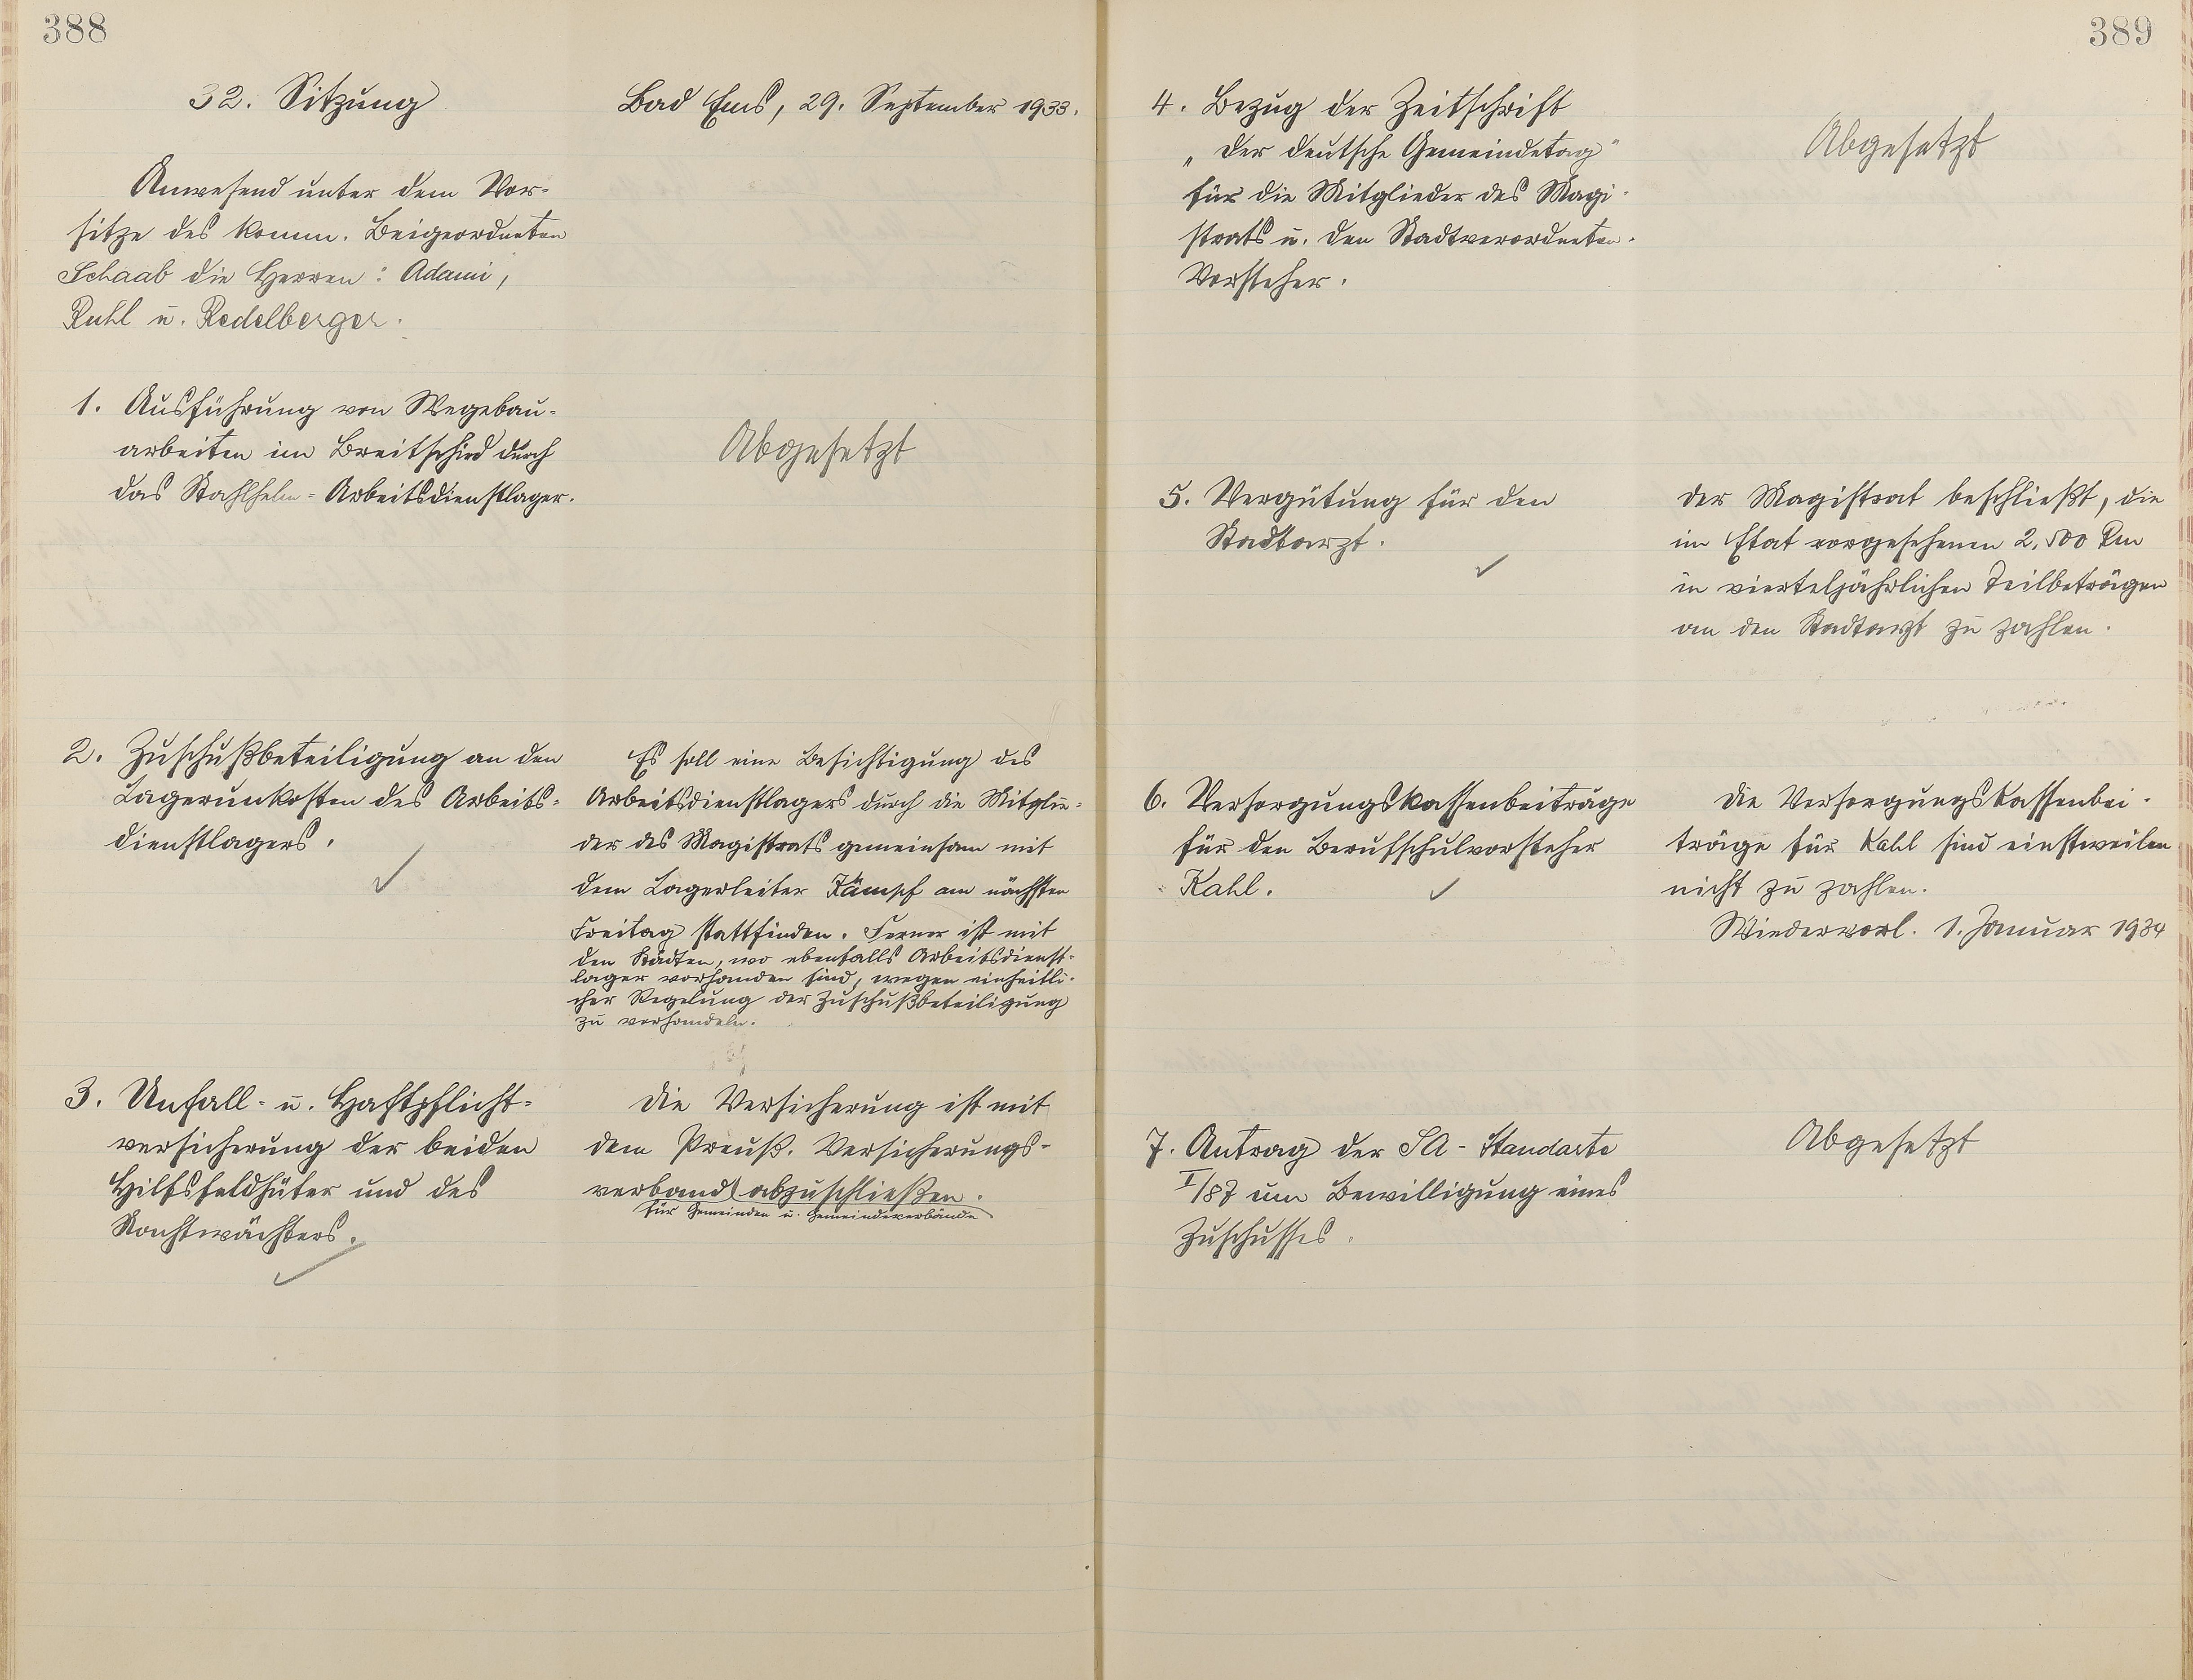 388
32. Sitzung
Bad Ems, 29. September 1933.
Anwesend unter dem Vor-
sitze des komm. Beigeordneten
Schaab die Herren: Adami,
Ruhl u. Redelberger.
1. Ausführung von Wegebau-
arbeiten im Breitschied durch
das Stahlhelm-Arbeitsdienstlager.
Abgesetzt
2. Zuschußbeteiligung an den
Lagerunkosten des Arbeits-
dienstlagers.
Es soll eine Besichtigung des
Arbeitsdienstlagers durch die Mitglie-
der des Magistrats gemeinsam mit
dem Lagerleiter Kämpf am nächsten
Freitag stattfinden. Ferner ist mit
den Städten, wo ebenfalls Arbeitsdienst-
lager vorhanden sind, wegen einheitli-
cher Regelung der Zuschußbeteiligung
zu verhandeln.
3. Unfall- u. Haftpflicht-
versicherung der beiden
Hilfsfeldhüter und des
Nachtwächters.
Die Versicherung ist mit
dem Preuß. Versicherungs-
verband abzuschließen.
für Gemeinden u. Gemeindeverbände
389
4. Bezug der Zeitschrift
„Der deutsche Gemeindetag"
für die Mitglieder des Magi-
strats u. den Stadtverordneten-
Vorsteher.
Abgesetzt
5. Vergütung für den
Stadtarzt.
Der Magistrat beschließt, die
im Etat vorgesehenen 2.500 Rm
in vierteljährlichen Teilbeträgen
an den Stadtarzt zu zahlen.
6. Versorgungskassenbeiträge
für den Berufschulvorsteher
Kahl.
Die Versorgungskassenbei-
träge für Kahl sind einstweilen
nicht zu zahlen.
Wiedervorl. 1. Januar 1934
7. Antrag der SA-Standarte
I/87 um Bewilligung eines
Zuschusses.
Abgesetzt